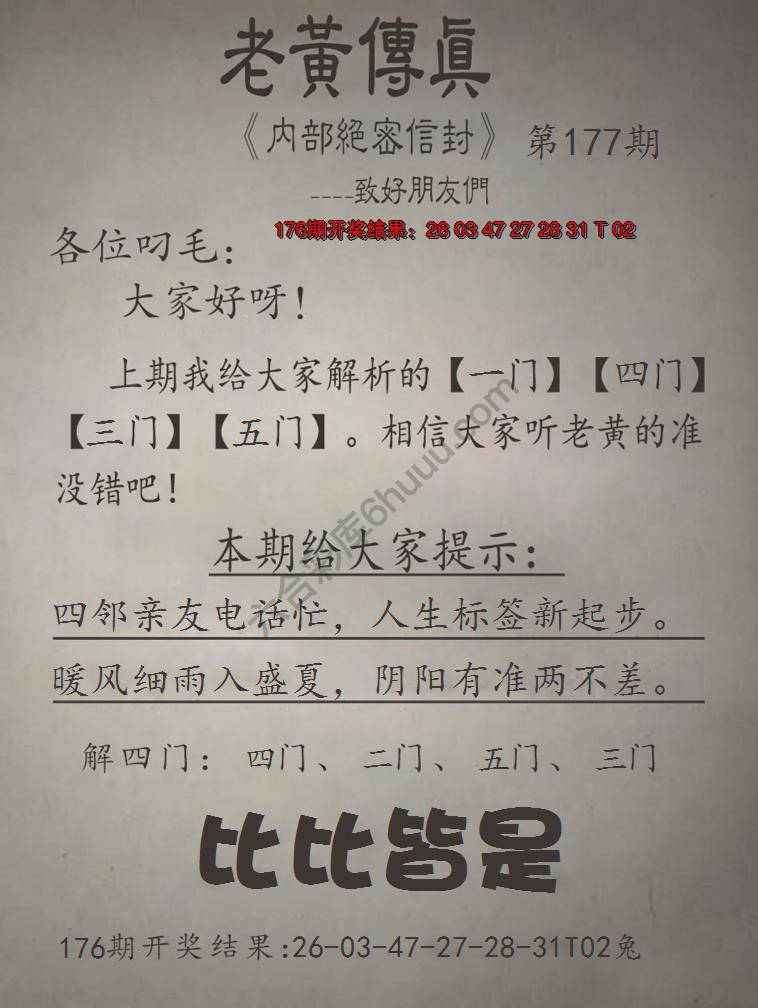 老黃傳眞
《内部絕密信封》 第177期
----致好朋友們
176期开奖结果：26 03 47 27 28 31 T 02
各位叼毛：
大家好呀！
上期我给大家解析的【一门】【四门】
【三门】【五门】。相信大家听老黄的准
没错吧！
六合彩库6huuu.com
本期给大家提示：
四邻亲友电话忙，人生标签新起步。
暖风细雨入盛夏，阴阳有准两不差。
解四门： 四门、 二门、 五门、 三门
比比皆是
176期开奖结果:26-03-47-27-28-31T02兔